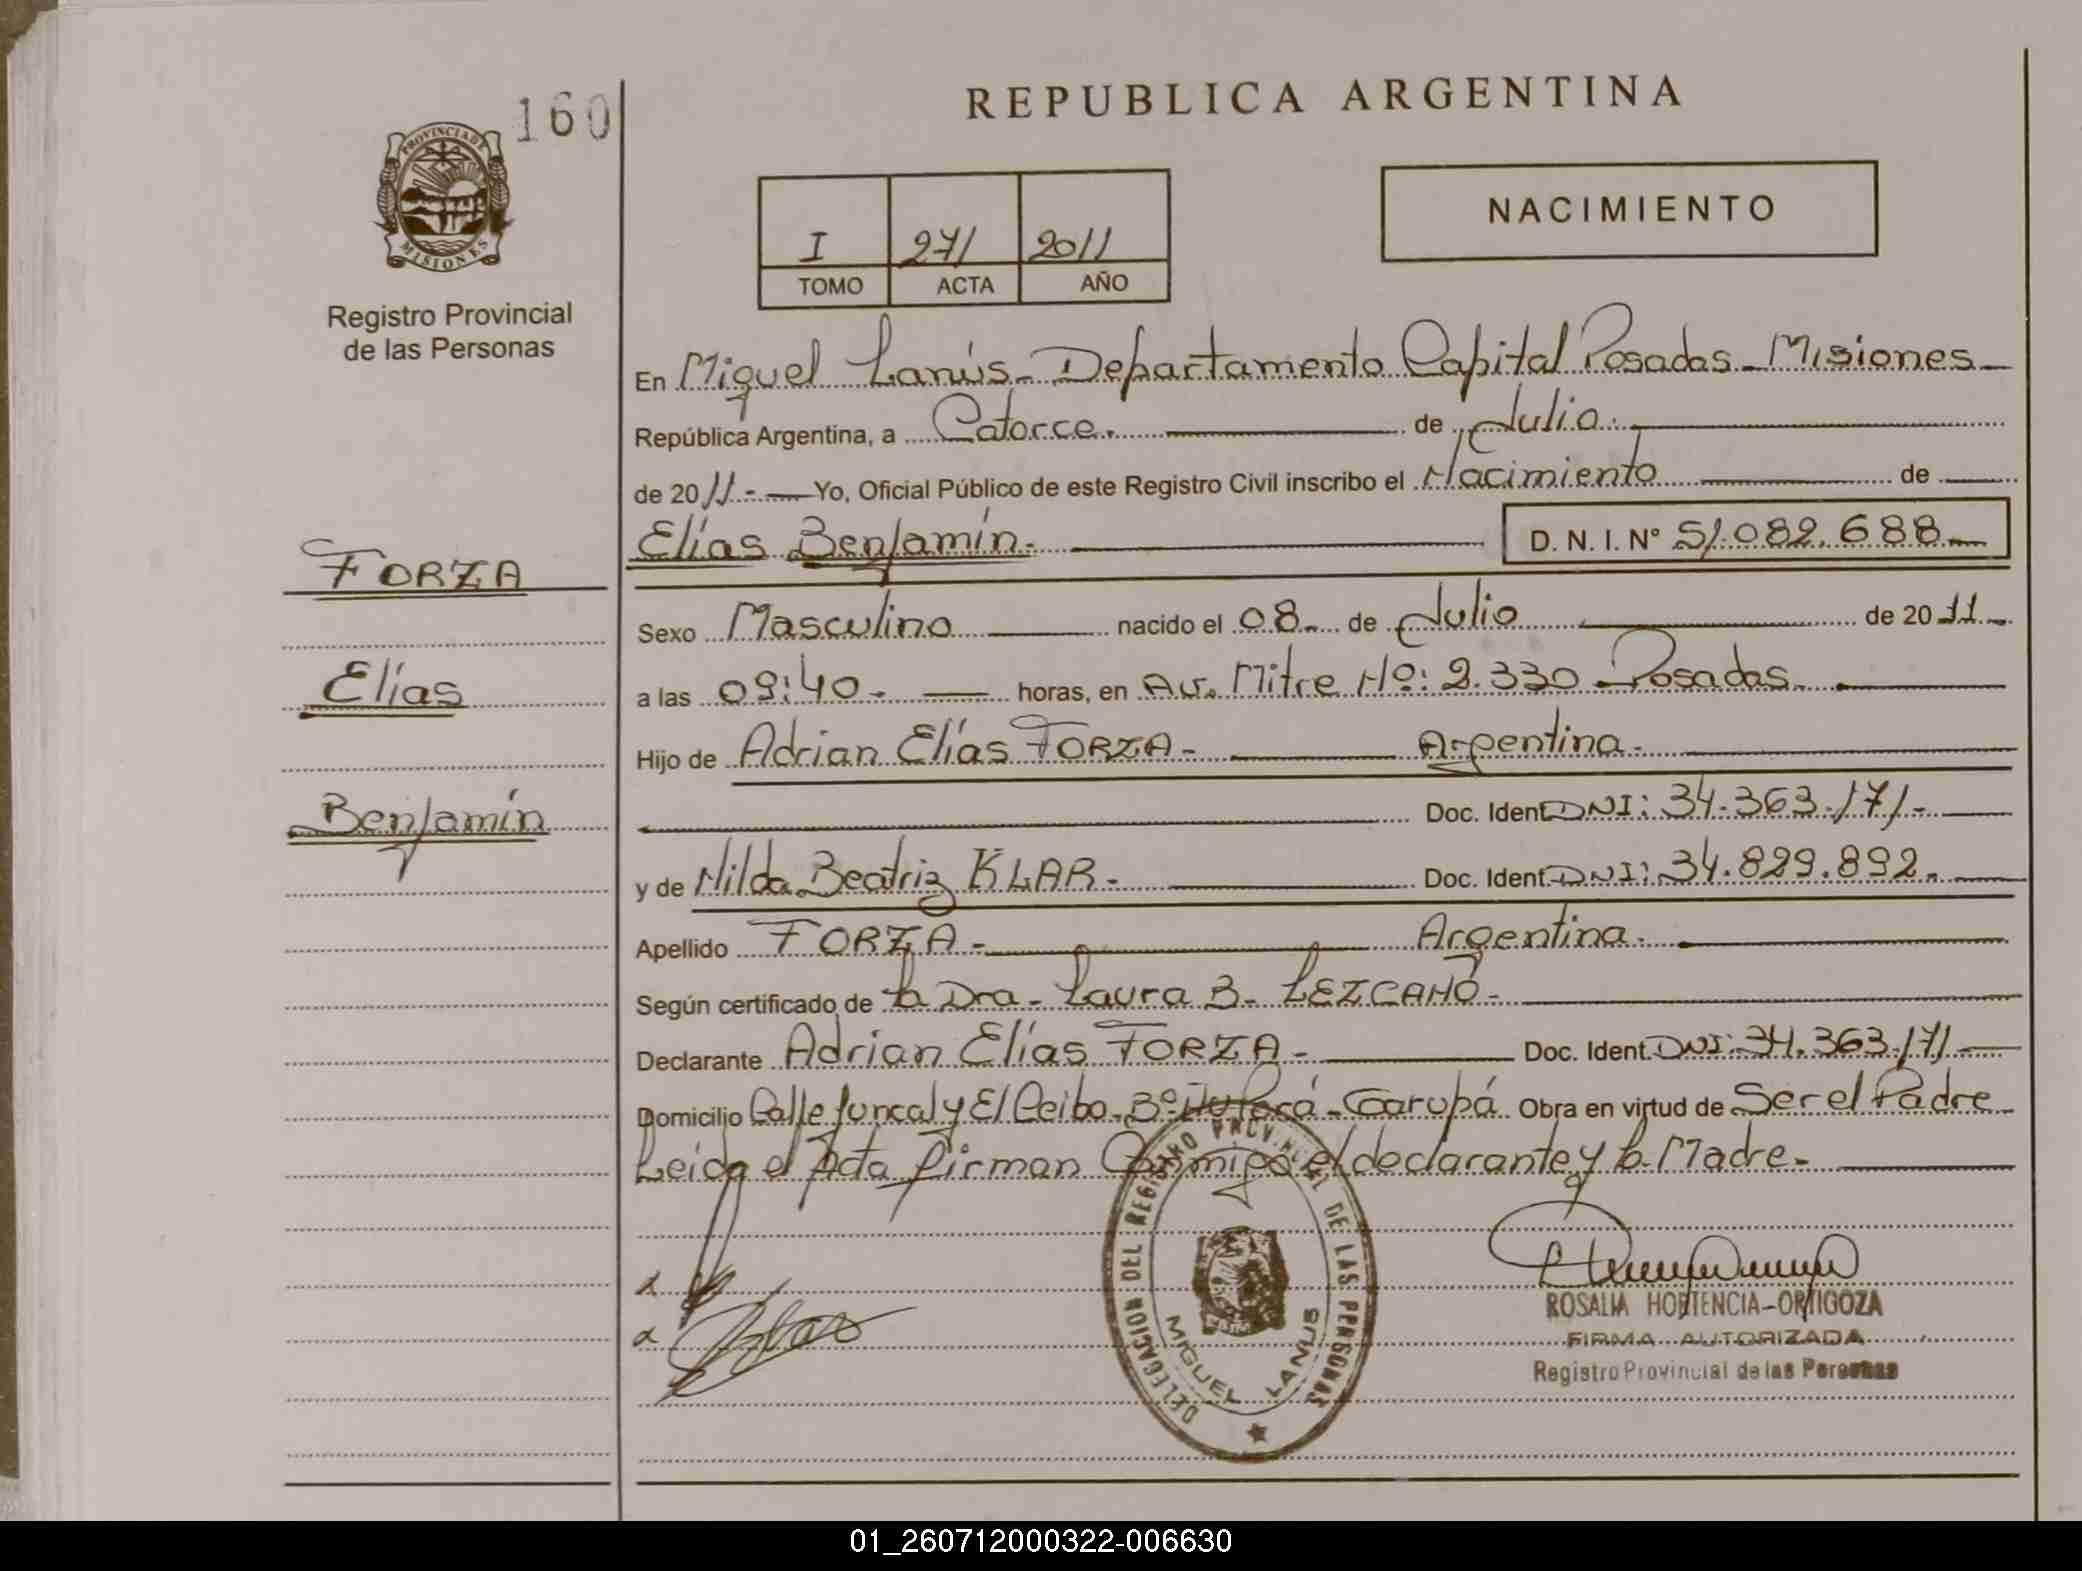 160
REPUBLICA ARGENTINA
PROVINCIA DE MISIONES
Registro Provincial
de las Personas
I 271 2011
TOMO ACTA AÑO
NACIMIENTO
En Miguel Lanús - Departamento Capital Posadas - Misiones
República Argentina, a Catorce. de Julio.
de 2011.- Yo, Oficial Público de este Registro Civil inscribo el Nacimiento de
Elías Benjamín. D. N. I. N° 51.082.688
FORZA
Elías
Benjamín
Sexo Masculino nacido el 08 de Julio de 2011
a las 09:40. horas, en Av. Mitre Nº: 2.330 Posadas.
Hijo de Adrian Elías FORZA - Argentina.
Doc. Ident. DNI: 34.363.171.-
y de Nilda Beatriz KLAR - Doc. Ident. DNI: 34.829.892.
Apellido FORZA - Argentina.
Según certificado de la Dra. Laura B. LEZCANO -
Declarante Adrian Elías FORZA - Doc. Ident. DNI: 34.363.171
Domicilio Calle Juncal y El Ceibo. Bº Garupá Obra en virtud de Ser el Padre
Leída el Acta firman Conmigo el declarante y la Madre -
DELEGACION DEL REGISTRO PROVINCIAL DE LAS PERSONAS
MIGUEL LANUS
ROSALIA HORTENCIA ORTIGOZA
FIRMA AUTORIZADA
Registro Provincial de las Personas
01_260712000322-006630